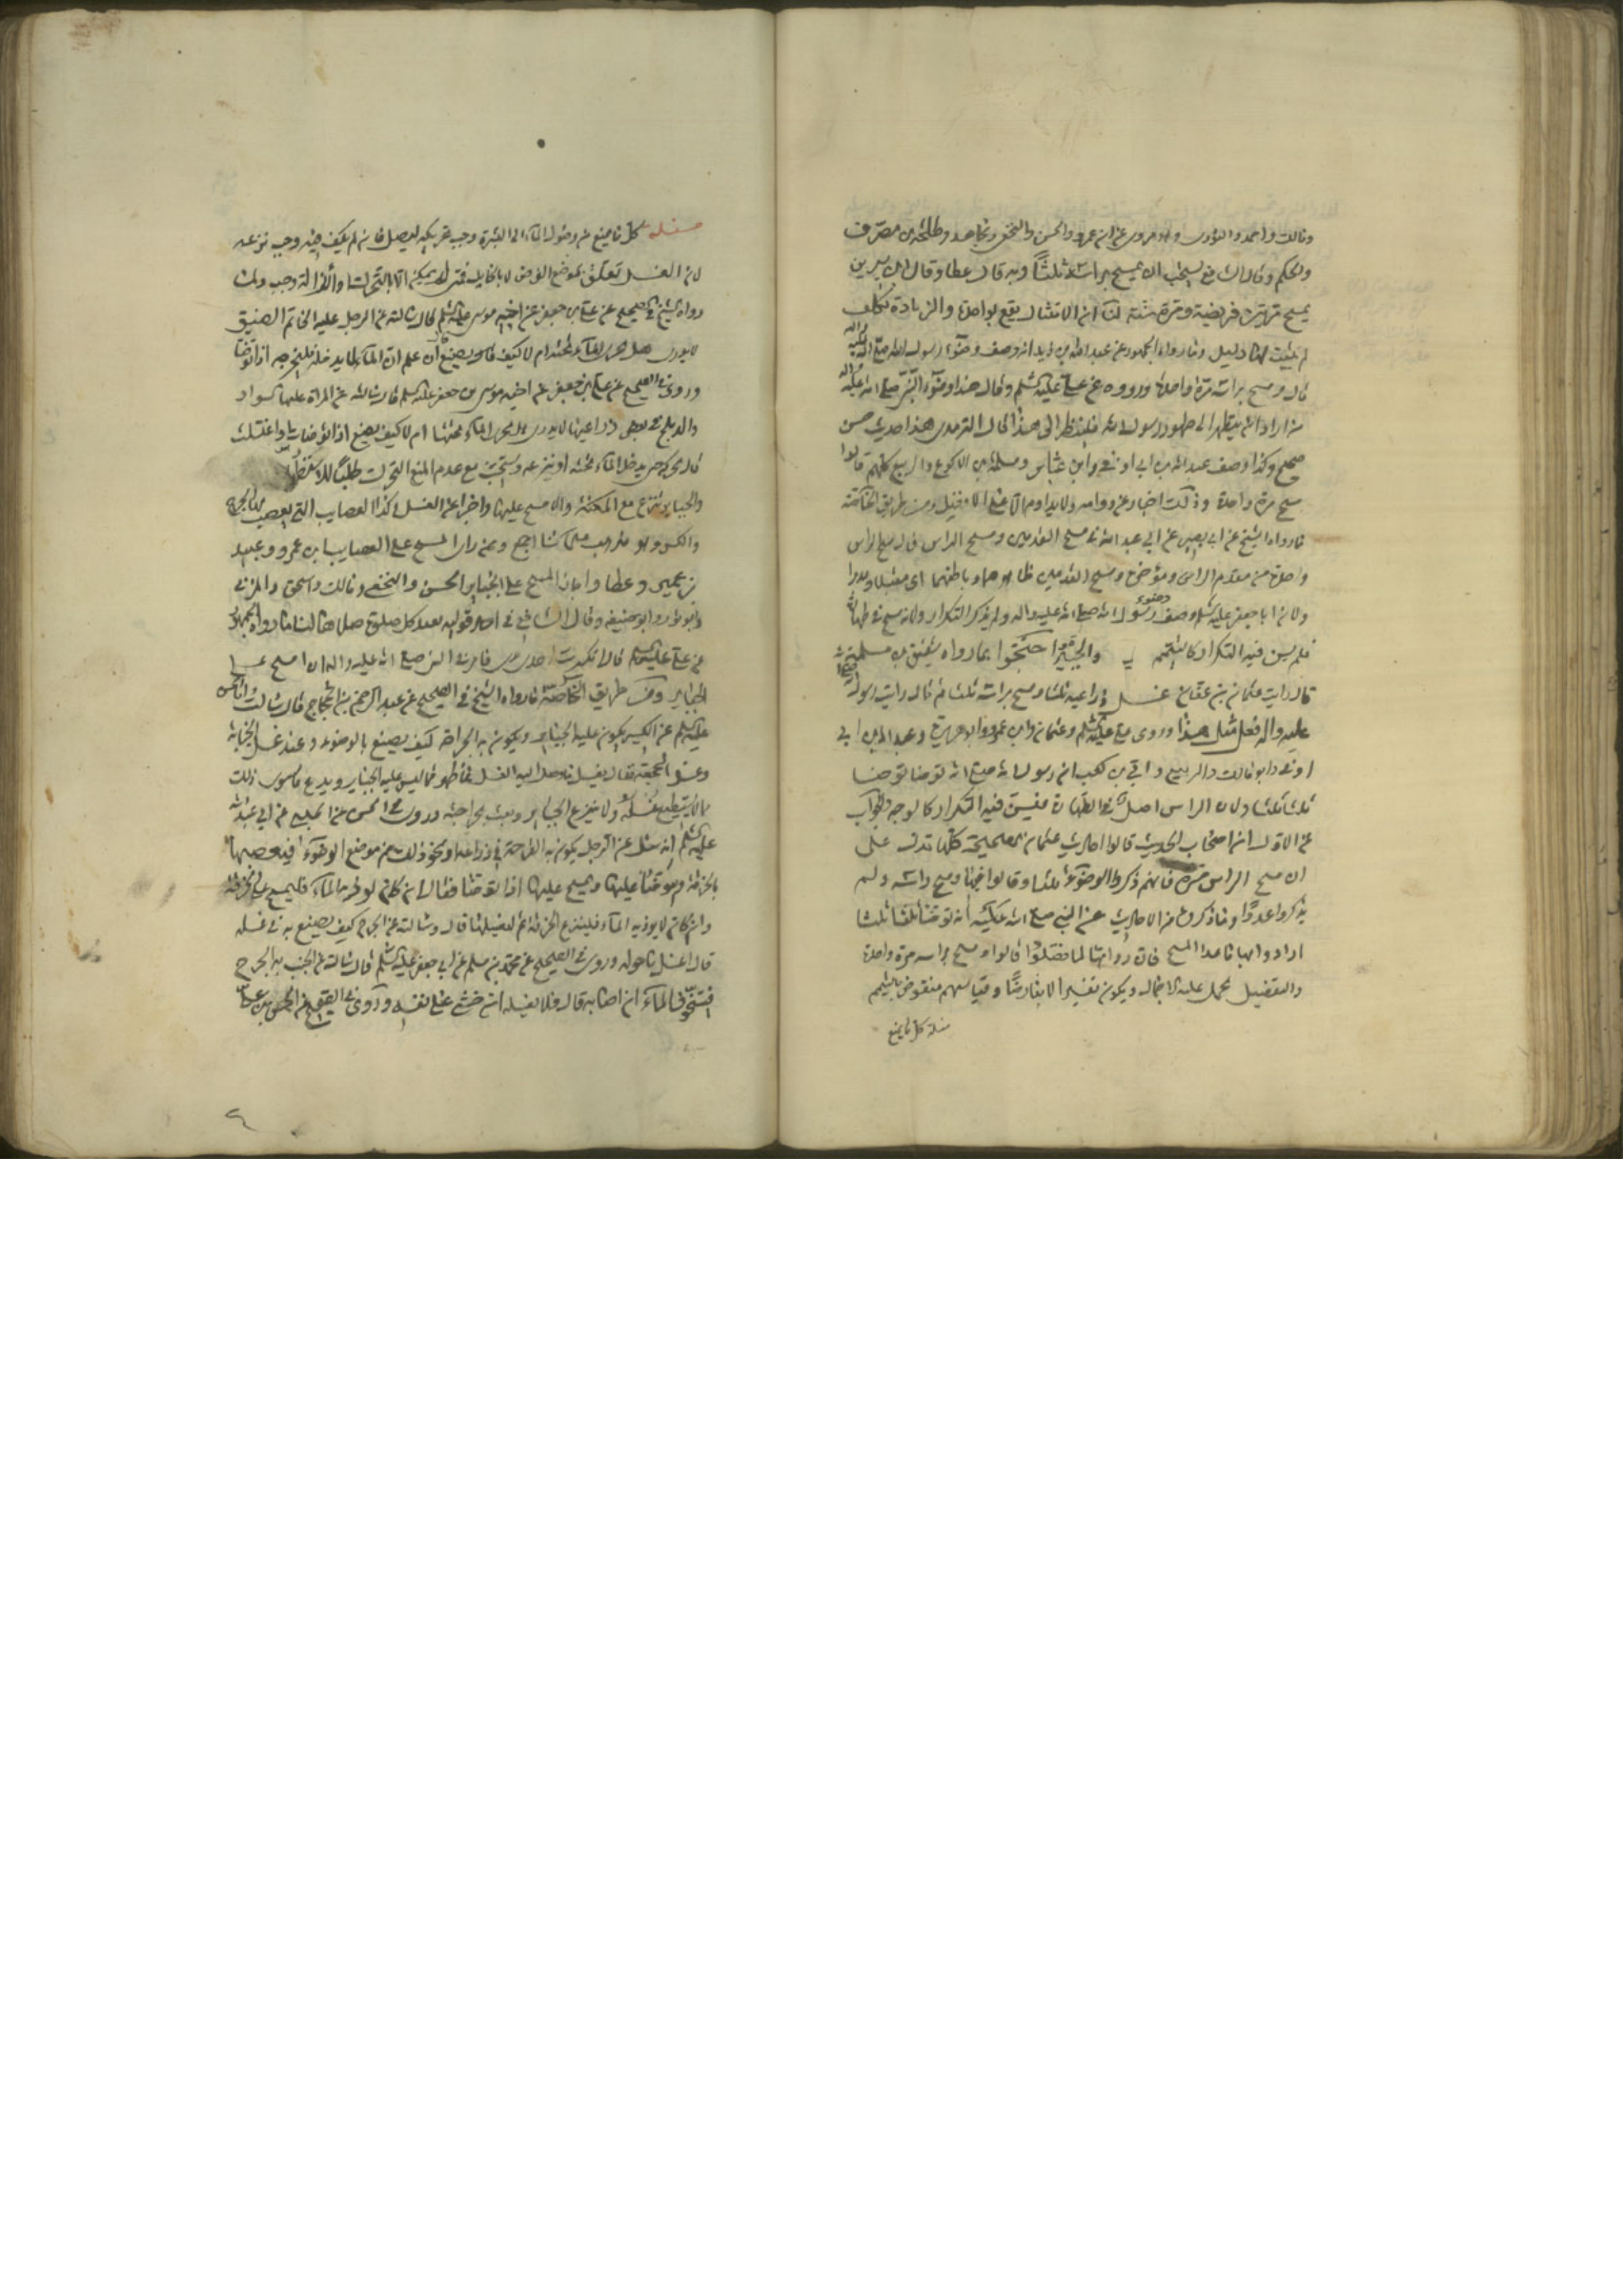 ومالك واحمد والثوري وهو مروي عن ابن عمر والحسن والنخعي ومجاهد وطلحة بن مصرف
والحكم وقال الشافعي يستحب ان يمسح براسه ثلثا وبه قال عطا وقال ابن سيرين
يمسح مرتين فريضة ومرة سنة لنا ان الامتثال يقع بواحدة والزيادة تكلف
لم يثبت لها دليل وما رواه الجمهور عن عبد الله بن زيد انه وصف وضوء رسول الله صلى الله عليه واله
قال ومسح براسه مرة واحدة ورووه عن علي عليه السلم وقال هذا وضوء النبي صلى الله عليه واله
من اراد ان ينظر الى طهور رسول الله فلينظر الى هذا قال الترمذي هذا حديث حسن
صحيح وكذا وصف عبد الله بن ابي اوفى وابن عباس وسلمة بن الاكوع والربيع كلهم قالوا
مسح مرة واحدة وذلك اخبار عن دوامه ولا يداوم الا على الافضل ومن طريق الخاصة
ما رواه الشيخ عن ابي بصير عن ابي عبد الله في مسح القدمين ومسح الراس قال مسح الراس
واحدة من مقدم الراس ومؤخره ومسح القدمين ظاهرهما وباطنهما اى مقبلا ومدبرا
ولان ابا جعفر عليه السلم وصف وضوء رسول الله صلى الله عليه واله ولم يذكر التكرار ولانه مسح في طهارة
فلم يسن فيه التكرار كالتيمم والجبيرة احتجوا بما رواه شقيق بن سلمة
قال رايت عثمان بن عفان غسل ذراعيه ثلثا ومسح براسه ثلثا ثم قال رايت رسول الله صلى الله
عليه واله فعل مثل هذا وروى علي عليه السلم وعثمان وابن عمر وابو هريرة وعبد الله بن ابي
اوفى وابو مالك والربيع وابي بن كعب ان رسول الله صلى الله توضا توضا
ثلثا ثلثا ولان الراس اصل في الطهارة فيسن فيه التكرار كالوجه والجواب
عن الاول ان اصحاب الحديث قالوا احاديث عثمان الصحيحة كلها تدل على
ان مسح الراس مرة فانهم ذكروا الوضوء ثلثا وقالوا فيها ومسح راسه ولم
يذكروا عددا وما ذكروه من الاحاديث عن النبي صلى الله عليه انه توضا ثلثا ثلثا
ارادوا بها ما عدا المسح فان رواتها لما فصلوا قالوا ومسح براسه مرة واحدة
والتفصيل يحمل عليه الاجمال ويكون تفسيرا لا يعارضا وقياسهم منقوض بالتيمم
مسئلة كل ما يمنع
مسئلة كل ما يمنع من وصول الماء الى البشرة وجب تحريكه ليصل فان لم يكف فيه وجب نزعه
لان الغسل تعلق بموضع الفرض لا بالحايل فمتى لم يمكن الا بالتحريك او الازالة وجب ولما
رواه الشيخ في الصحيح عن علي بن جعفر عن اخيه موسى عليه السلم قال سالته عن الرجل عليه الخاتم الضيق
لا يدري هل يجري الماء تحته ام لا كيف يصنع قال ان علم ان الماء لا يدخله فليخرجه اذا توضا
وروى في الصحيح عن علي بن جعفر عن اخيه موسى بن جعفر عليه السلم قال سالته عن المراة عليها السوار
والدملج في بعض ذراعيها لا يدري يجري الماء تحتها ام لا كيف يصنع اذا توضات او اغتسلت
قال تحركه حتى يدخل الماء تحته او ينزعه ويستحب مع عدم المنع التحريك طلبا للاستظهار
والجباير تنزع مع المكنة والا مسح عليها واجزا عن الغسل وكذا العصايب التي يعصب بها الجرح
والكسر وهو مذهب علمائنا اجمع وممن راى المسح على العصايب ابن عمر وعبيد
بن عمير وعطا واجاز المسح على الجباير الحسن والنخعي ومالك واسحق والمزني
وابو ثور وابو حنيفة وقال الشافعي في احد قوليه يعيد كل صلوة صلاها لنا ما رواه الجمهور
عن علي عليه السلم قال انكسرت احدى زندي فامرني النبي صلى الله عليه واله ان امسح على
الجباير ومن طريق الخاصة ما رواه الشيخ في الصحيح عن عبد الرحمن بن الحجاج قال سالت ابا الحسن
عليه السلم عن الكسير يكون عليه الجباير ويكون به الجراحة كيف يصنع بالوضوء وعند غسل الجنابة
وغسل الجمعة فقال يغسل ما وصل اليه الغسل مما ظهر مما ليس عليه الجباير ويدع ما سوى ذلك
مما لا يستطيع غسله ولا ينزع الجباير ويعبث بجراحته وروى في الحسن عن الحلبي عن ابي عبد الله
عليه السلم انه سئل عن الرجل يكون به القرحة في ذراعه او نحو ذلك من موضع الوضوء فيعصبها
بالخرقة ويتوضا عليها ويمسح عليها اذا توضا فقال ان كان يوذيه الماء فليمسح على الخرقة
وان كان لا يوذيه الماء فلينزع الخرقة ثم ليغسلها قال وسالته عن الجرح كيف يصنع به في غسله
قال اغسل ما حوله وروى في الصحيح عن محمد بن مسلم عن ابي جعفر عليه السلم قال سالته عن الجنب به الجرح
فيتخوف الماء ان اصابه قال فلا يغسله ان خشي على نفسه وروى في الصحيح عن الحسن بن علي